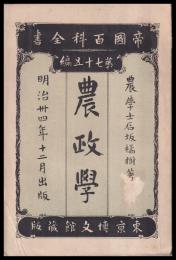 帝國百科全書
第七十五編
農學士石坂橘樹著
農政學
明治卅四年十二月出版
東京博文館蔵版